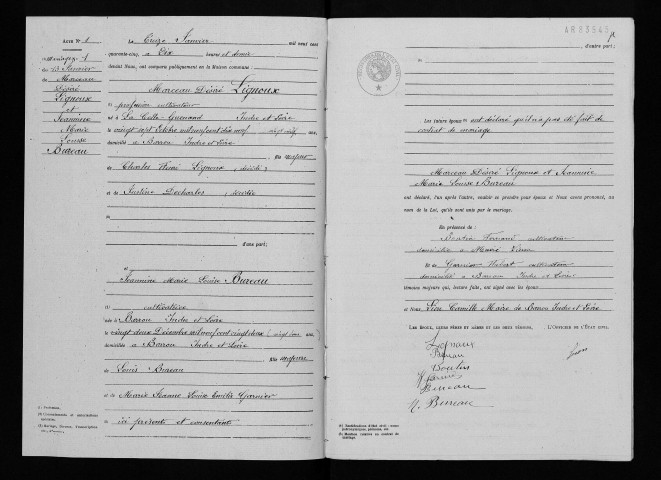 Acte N° 1
Mariage
Marceau
Désiré
Lignoux
et
Jeannine
Marie
Louise
Bureau
Le Treize Janvier mil neuf cent
quarante-cinq, à Dix heures et demie
devant Nous, ont comparu publiquement en la Maison commune :
Marceau Désiré Lignoux
(1) profession cultivateur
né à La Celle-Guenand Indre et Loire
le vingt sept Octobre mil neuf cent dix neuf, vingt cinq ans,
domicilié à Barrou Indre et Loire
fils majeur
de Charles Lignoux, décédé
et de Justine Decharles, décédée
d'une part;
et Jeannine Marie Louise Bureau
(1) cultivatrice
née à Barrou Indre et Loire
le vingt deux Décembre mil neuf cent vingt deux, vingt deux ans,
domiciliée à Barrou Indre et Loire
fille majeure
de Louis Bureau
et de Marie Jeanne Louise Emilie Garnier
ici présents et consentants
(1) Profession.
d'autre part;
Les futurs époux ont déclaré qu'il n'a pas été fait de
contrat de mariage
Marceau Désiré Lignoux et Jeannine
Marie Louise Bureau
ont déclaré, l'un après l'autre, vouloir se prendre pour époux et Nous avons prononcé, au
nom de la Loi, qu'ils sont unis par le mariage.
En présence de
Boutin Fernand cultivateur
domicilié à Mairé Vienne
et de Garnier cultivateur
domicilié à Barrou Indre et Loire
témoins majeurs qui, lecture faite, ont signé avec les époux
et Nous, Camille Maire de Barrou Indre et Loire
LES ÉPOUX, LEURS PÈRES ET MÈRES ET LES DEUX TÉMOINS, L'OFFICIER DE L'ÉTAT CIVIL,
Lignoux
Bureau
Boutin
Garnier
Bureau
Bureau